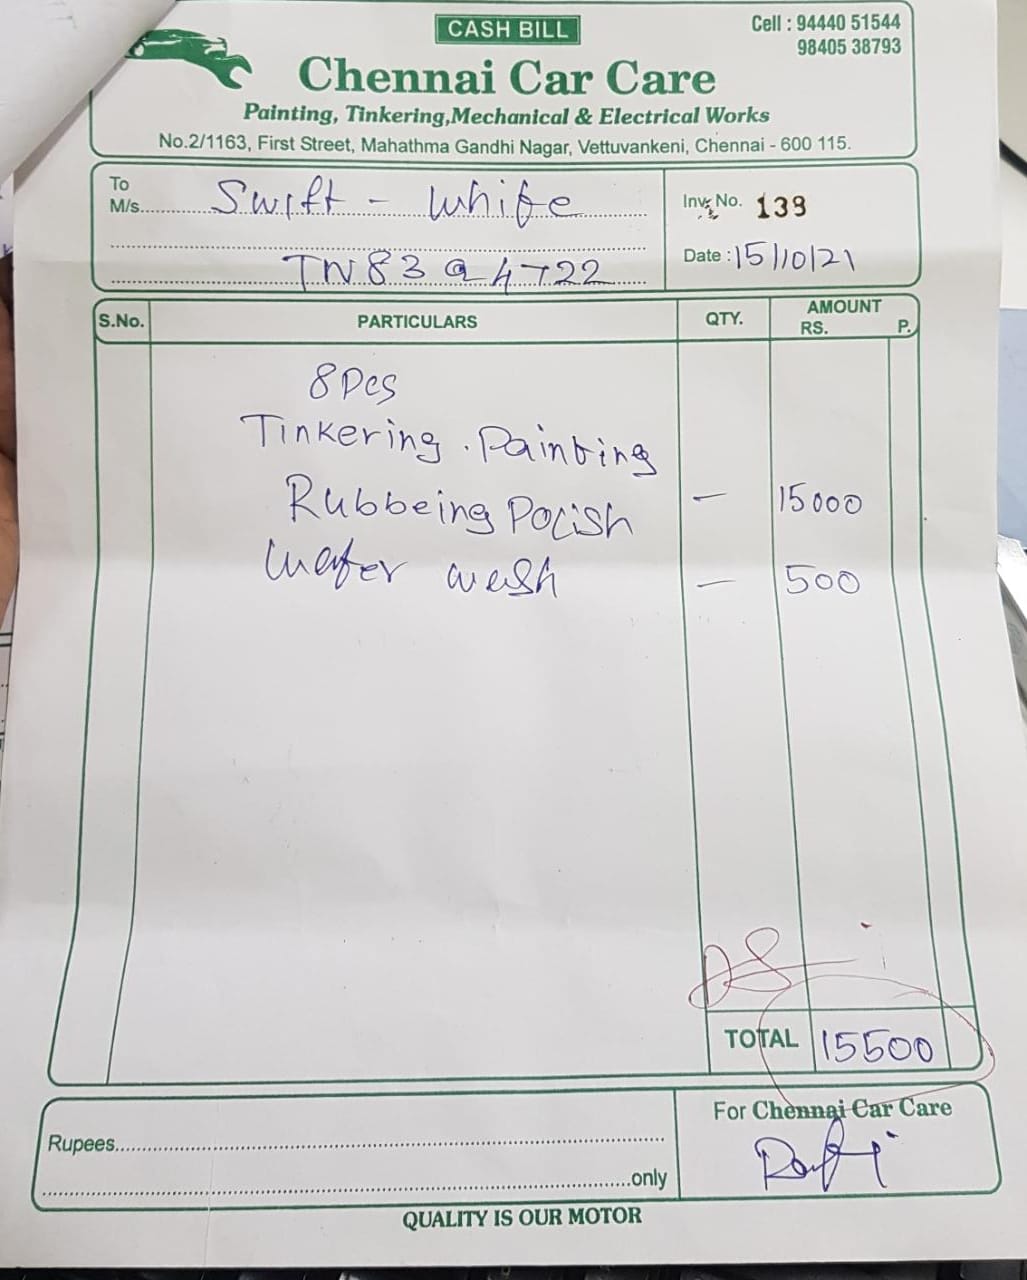 CASH BILL
Cell : 94440 51544
98405 38793
Chennai Car Care
Painting, Tinkering,Mechanical & Electrical Works
No.2/1163, First Street, Mahathma Gandhi Nagar, Vettuvankeni, Chennai - 600 115.
To
M/s. Swift - White
Inv. No. 139
Date : 15/10/21
TN83 Q 4722
S.No. PARTICULARS QTY. AMOUNT
RS. P.
8 Pcs
Tinkering . Painting
Rubbeing Polish - 15000
Water wash - 500
TOTAL 15500
For Chennai Car Care
Rupees
only
QUALITY IS OUR MOTOR